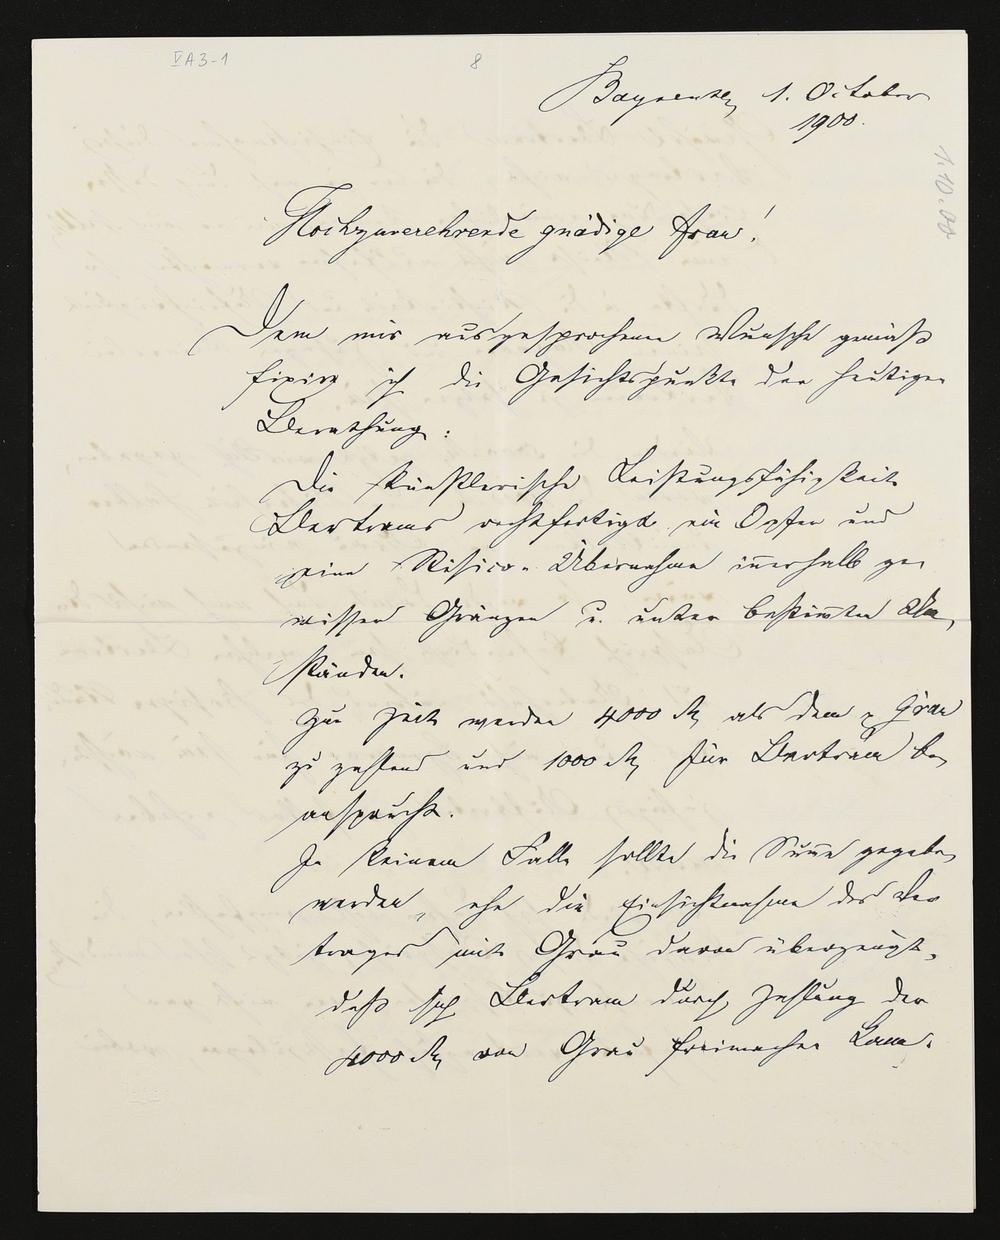 VA3-1
8
Bayreuth, 1. October
1900.
1.10.00
Hochzuverehrende gnädige Frau!
Dem mir ausgesprochenen Wunsche gemäß
fixire ich die Gesichtspunkte der heutigen
Berathung:
Die künstlerische Leistungsfähigkeit
Bertrams rechtfertigt ein Opfer und
eine Risico-Übernahme innerhalb ge-
wisser Gränzen u. unter bestimmten Um-
ständen.
Zur Zeit werden 4000 M als dem Grau
zu zahlend und 1000 M für Bertram be-
ansprucht.
In keinem Falle sollte die Summe gegeben
werden, ehe die Einsichtnahme des Ver-
trages mit Grau davon überzeugt,
daß sich Bertram durch Zahlung der
4000 M von Grau freimachen kann.